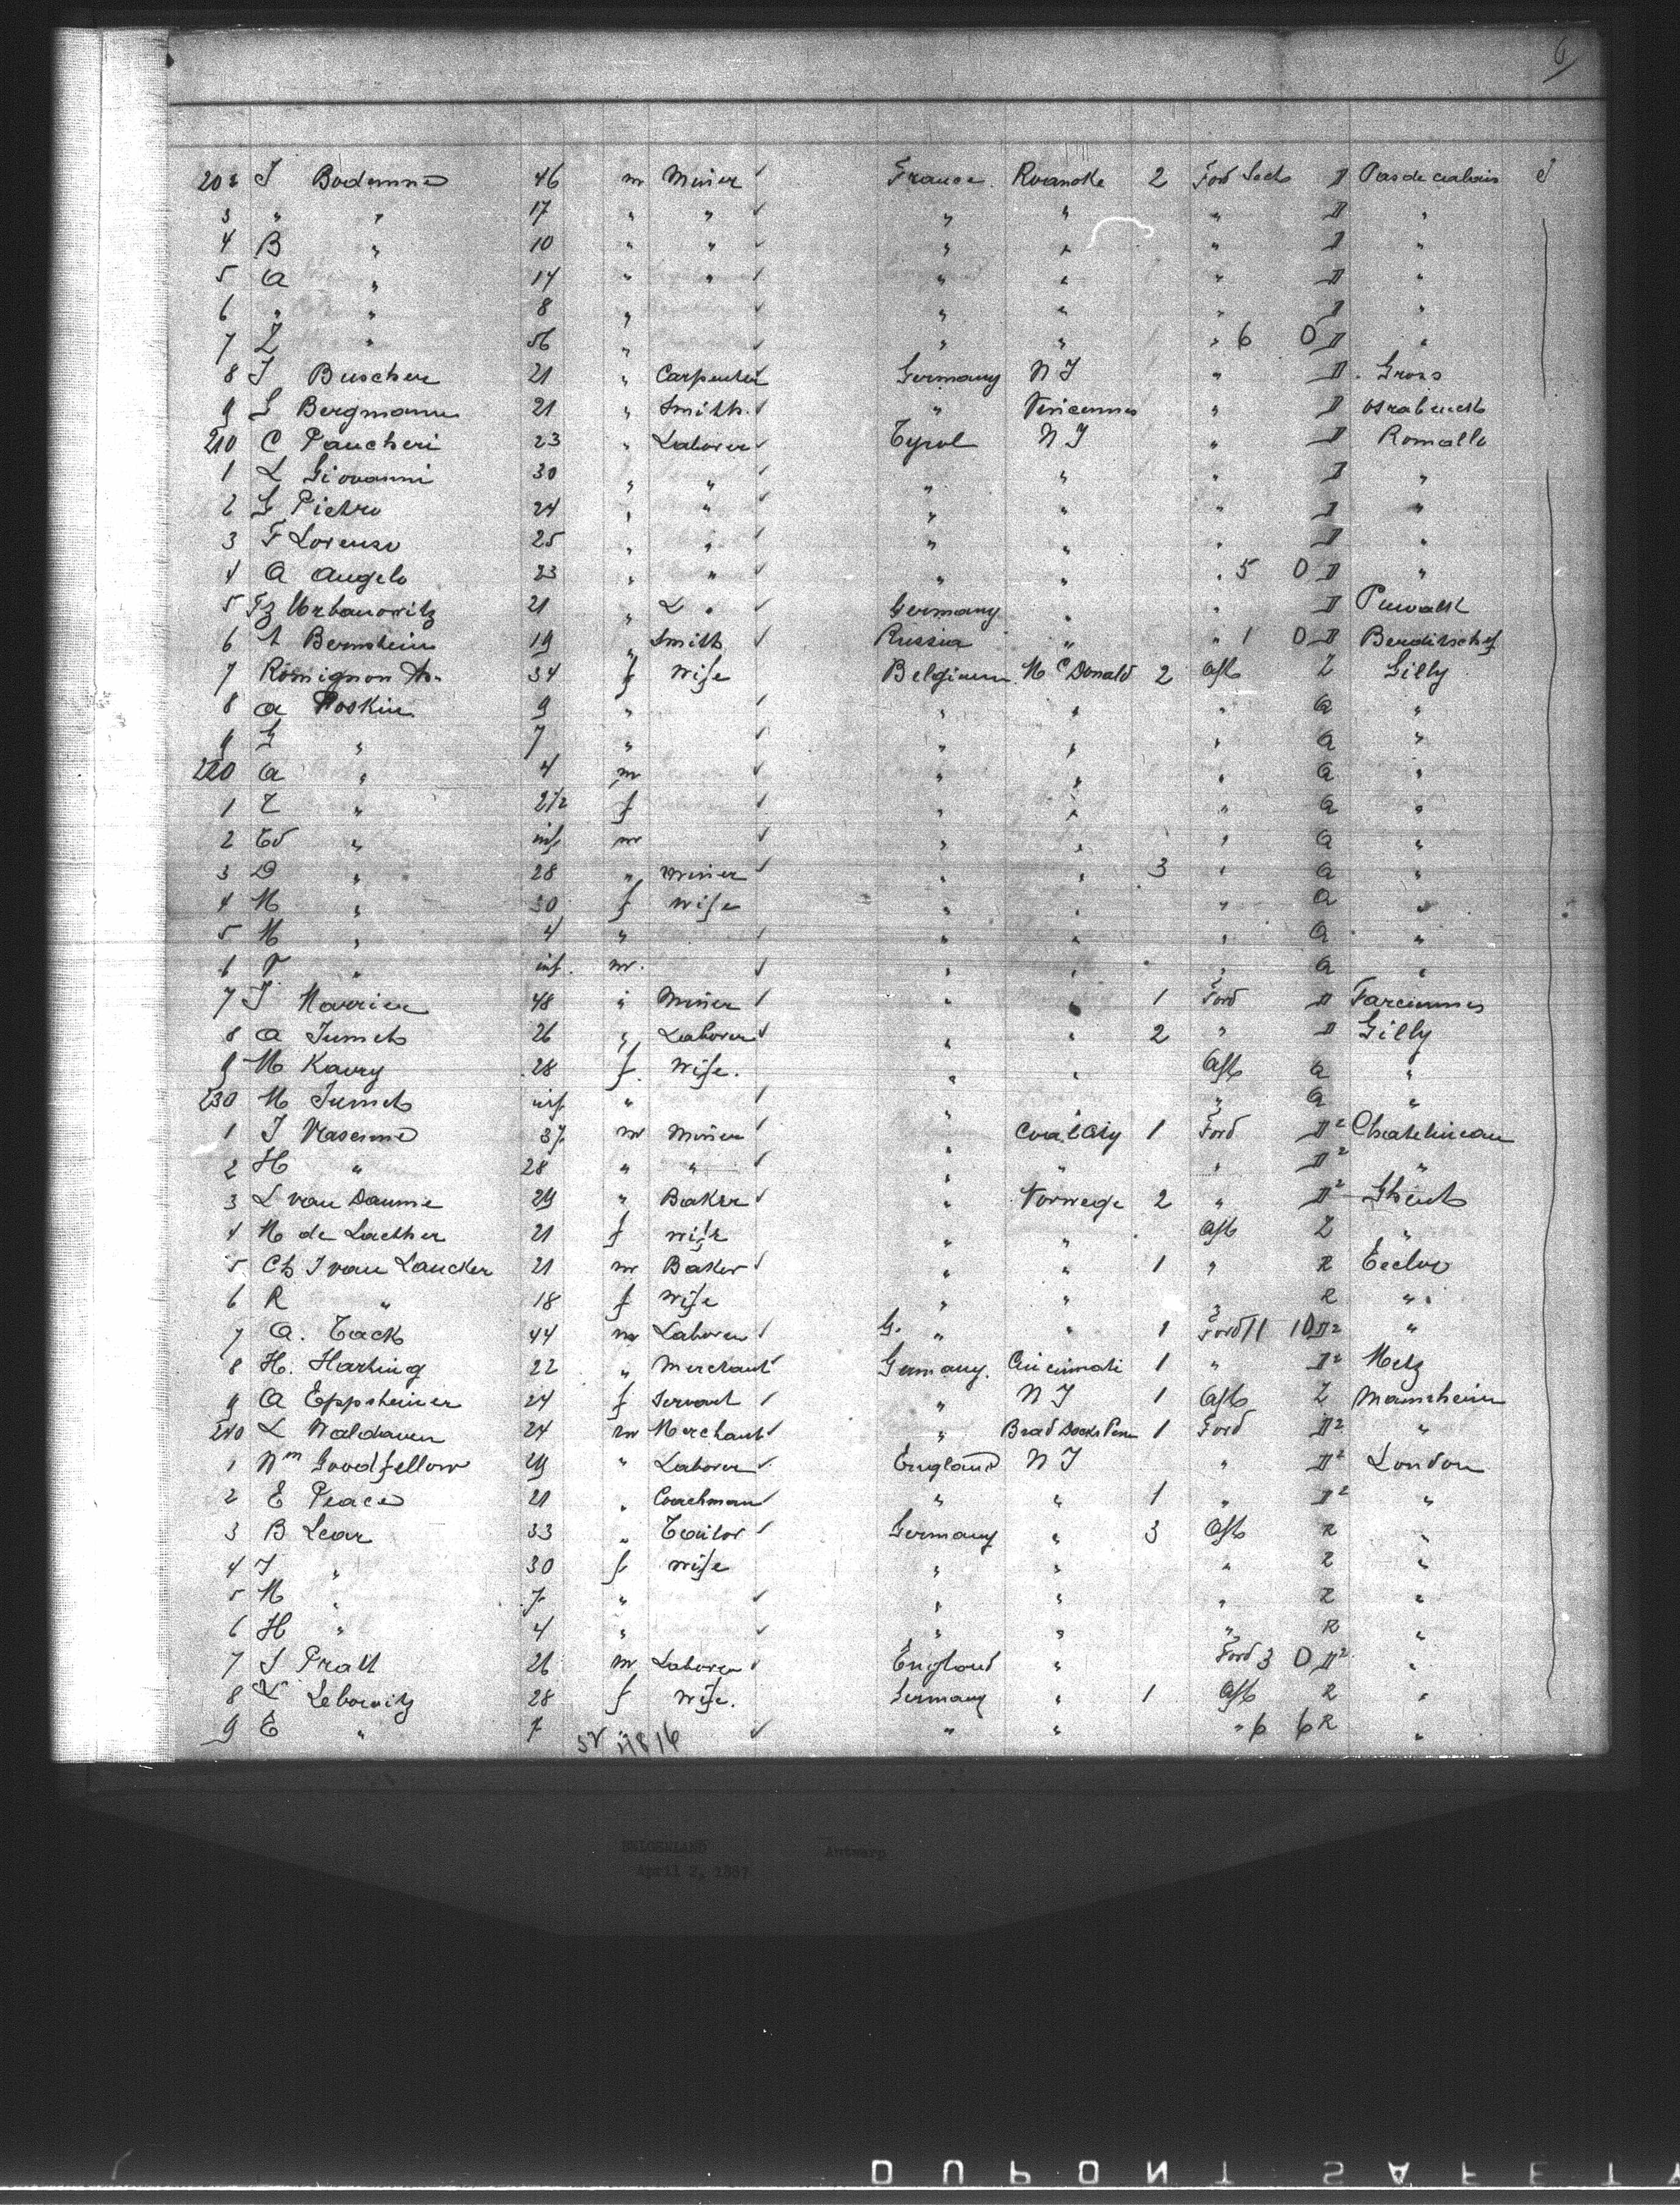 6
202 J Bodenne 46 m Miner ✓ France Roanoke 2 Ford Sech D Pas de calais
3 " " 17 " " ✓ " " " D "
4 B " 10 " " ✓ " " " D "
5 A " 14 " " ✓ " " " D "
6 " " 8 " ✓ " " " D "
7 Z " 56 " ✓ " " " 6 0 D "
8 J Buscher 21 " Carpenter Germany N J " D Gross
9 G Bergmann 21 " Smith ✓ " Vincennes " D Osrabruck
210 C Pancheri 23 " Laborer ✓ Tyrol N J " D Romallo
1 L Giovanni 30 " " ✓ " " " D "
2 G Pietro 24 " " ✓ " " " D "
3 F Lorenso 25 " " ✓ " " " D "
4 A Angelo 23 " " ✓ " " " 5 0 D "
5 Fz Urbanowitz 21 " L " ✓ Germany " " D Puwalk
6 Bernstein 19 " Smith ✓ Russia " " 1 0 D Berditschef
7 Romignon 34 f Wife Belgium Mc Donald 2 Aft Z Gilly
8 A Poskin 9 " ✓ " " " A "
9 G " 7 " ✓ " " " A "
220 A " 4 m ✓ " " " A "
1 E " 2 1/2 f ✓ " " " A "
2 Ed " inf m ✓ " " " A "
3 D " 28 " Miner ✓ " " 3 " A "
4 M " 30 f Wife " " " A "
5 M " 4 " ✓ " " " A "
6 V " inf. m. ✓ " " " A "
7 J Marrier 48 " Miner ✓ " " 1 Ford D Farciennes
8 A Jumets 26 " Laborer ✓ " " 2 " D Gilly
9 M Kavry 28 f. Wife. " " Aft A "
230 M Jumets inf " ✓ " " " A "
1 J Massine 37 m Miner ✓ " Coal City 1 Ford D2 Chatelineau
2 H " 28 " " ✓ " " " D2 "
3 L van Damme 29 " Baker ✓ " Norwege 2 " D2 Ghent
4 M de Laether 21 f Wife " " Aft Z "
5 Ch J van Lancker 21 m Baker ✓ " " 1 " R Eecloo
6 R " 18 f Wife " " " R "
7 A. Tack 44 m Laborer ✓ G. " " 1 Ford 11 10 D2 "
8 H. Harting 22 " Merchant Germany Cincinnati 1 " D2 Metz
9 A Eppsheimer 24 f Servant ✓ " N J 1 Aft Z Mannheim
240 L Waldauer 24 m Merchant ✓ " Brad Docks Penn 1 Ford D2 "
1 Wm Goodfellow 29 " Laborer ✓ England N J " D2 London
2 E Peace 21 " Coachman ✓ " " 1 " D2 "
3 B Lear 33 " Tailor ✓ Germany " 3 Aft R "
4 J " 30 f Wife " " " R "
5 M " 7 " ✓ " " " R "
6 H " 4 " ✓ " " " R "
7 J Pratt 26 m Laborer ✓ England " Ford 3 0 D2 "
8 L Lebowitz 28 f Wife. Germany " 1 Aft R "
9 E " 7 ✓ " " " 6 6 R "
BELGENLAND Antwerp
April 2, 1887
DUPONT SAFETY